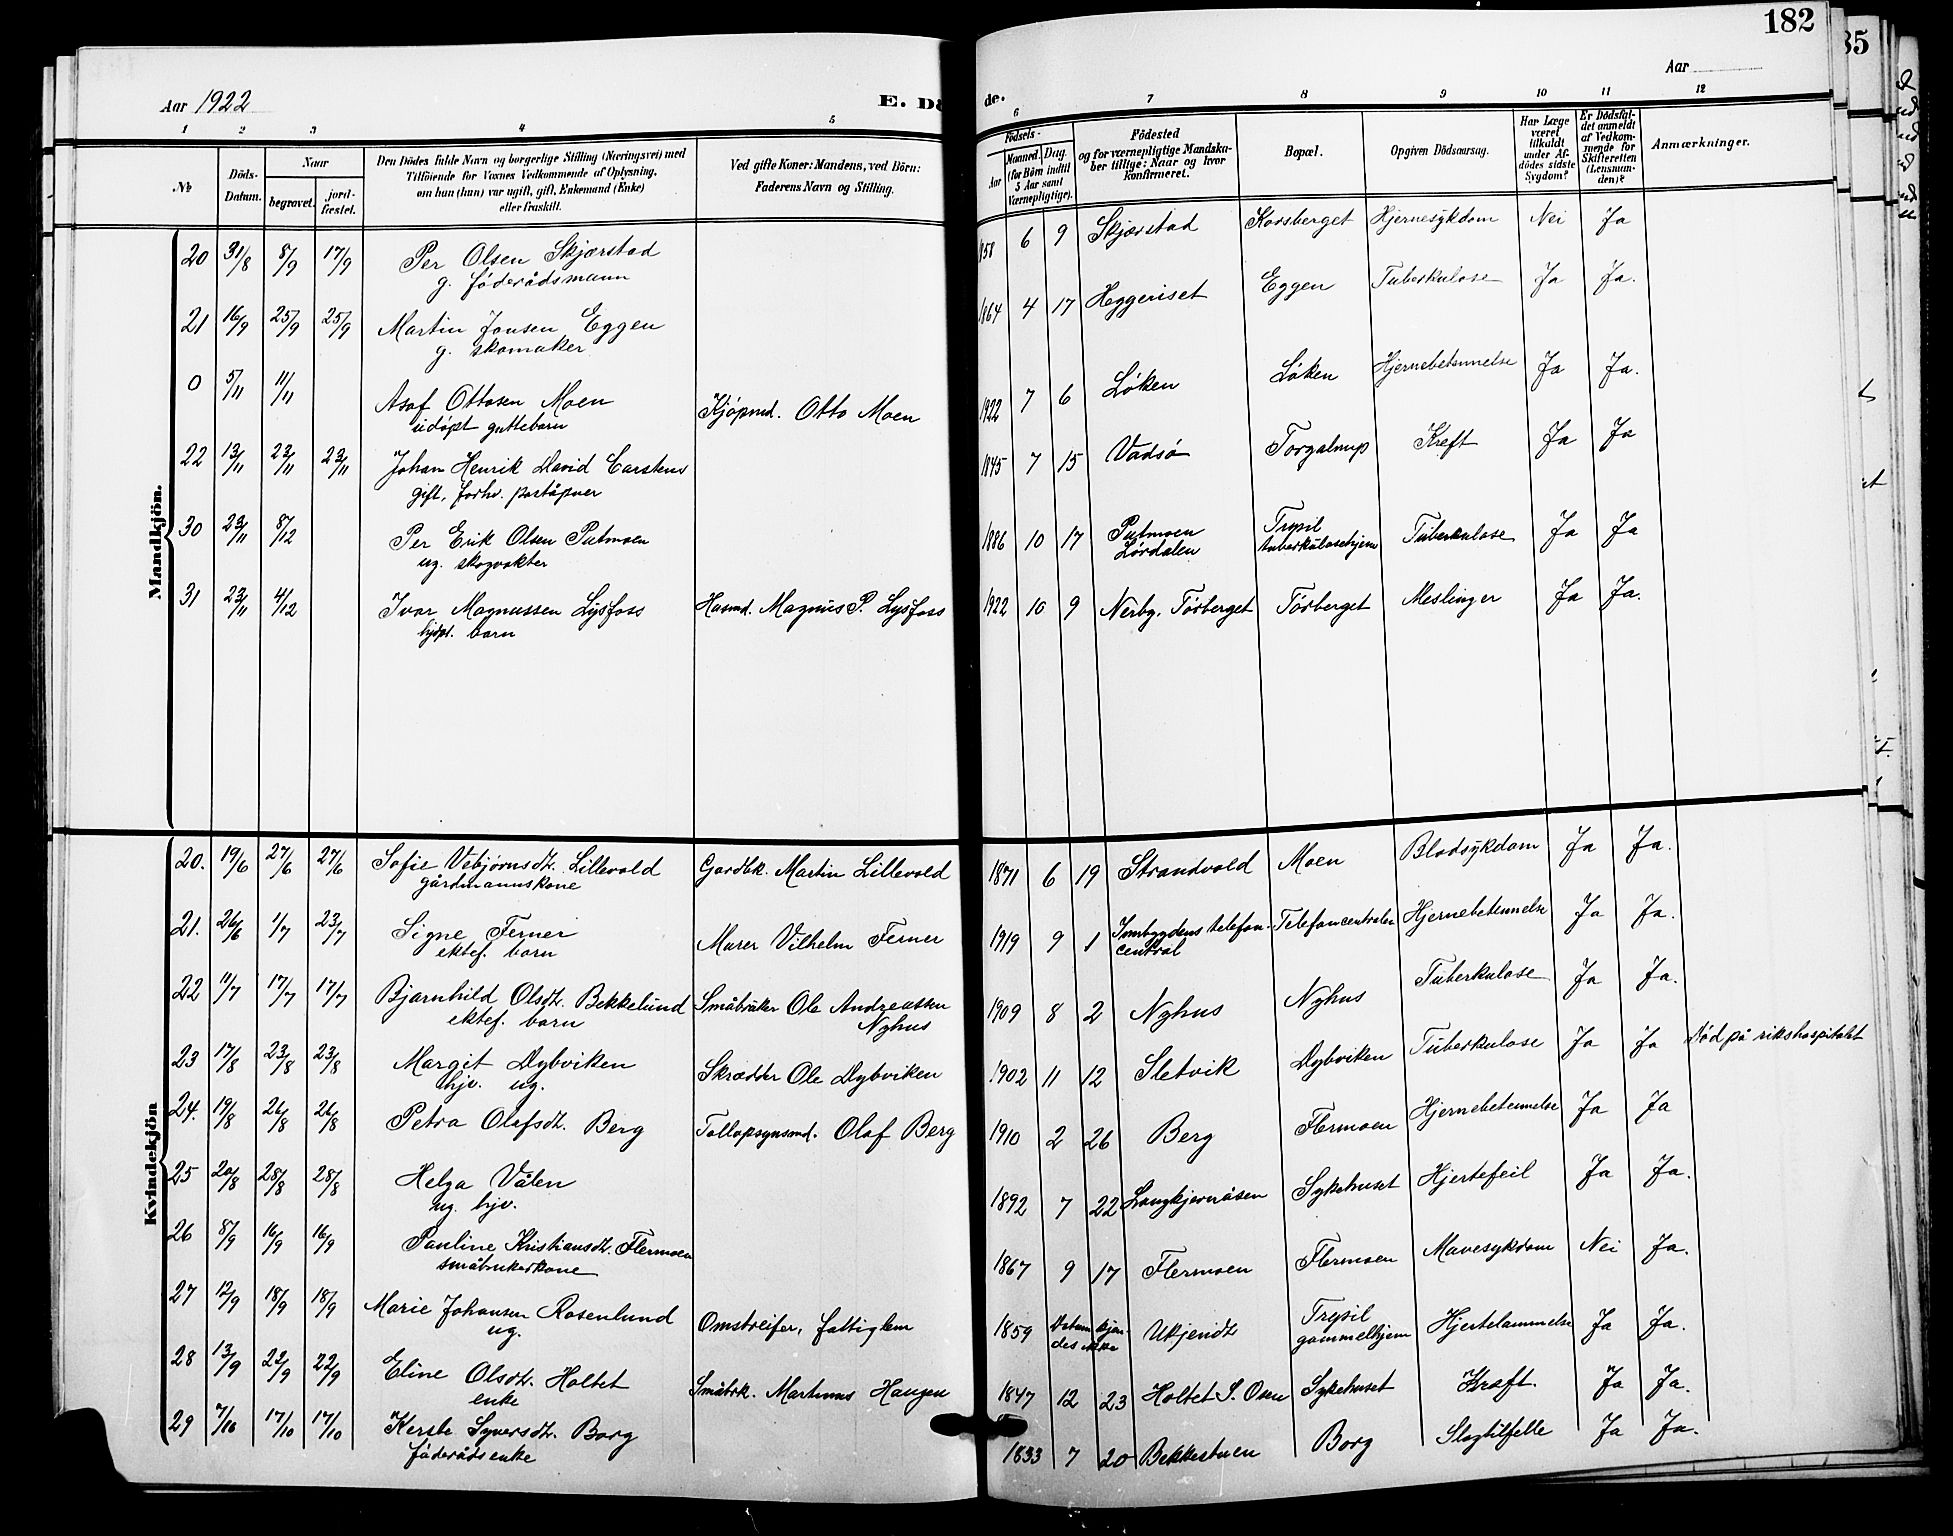 182
35
Aar 1922
E. Dö
de.
Aar
1 2 3 4 5
6 7 8 9 10 11 12
№
Döds-Datum.
Naar
begravet.
jord-fæstet.
Den Dödes fulde Navn og borgerlige Stilling (Næringsvei) med
Tilföiende for Voxnes Vedkommende af Oplysning,
om hun (hun) var ugift, gift, Enkemand (Enke)
eller fraskilt.
Ved gifte Koner: Mandens, ved Börn:
Faderens Navn og Stilling.
Födsels-
Aar
Maaned. Dag.
(for Börn indtil
5 Aar samt
Værnepligtige).
Födested
og for værnepligtige Mandska-
ber tillige: Naar og hvor
konfirmeret.
Bopæl.
Opgiven Dödsaarsag.
Har Læge
været
tilkaldt
under Af-
dödes sidste
Sygdom?
Er Dödsfal-
det anmeldt
af Vedkom-
mende for
Skifteretten
(Lensman-
den)?
Anmærkninger.
Mandkjön.
20 31/8 8/9 17/9 Per Olsen Skjærstad 1858 6 9 Skjærstad Korsberget Hjernesykdom Nei Ja
g. föderådsmann
21 16/9 25/9 25/9 Martin Jonsen Eggen 1864 4 17 Heggeriset Eggen Tuberkulose Ja Ja.
g. skomaker
0 5/11 11/11 Asof Ottosen Moen Kjöpmd. Otto Moen 1922 7 6 Löken Löken Hjernebetennelse Ja Ja.
udöpt guttebarn
22 13/11 23/11 23/11 Johan Henrik David Carstens 1845 7 15 Vadsø Torgalsrup Kreft Ja Ja
gift, forhv. poståpner
30 23/11 8/12 Per Erik Olsen Putmoen 1886 10 17 Putmoen Lördalen Trysil tuberkulosehjem Tuberkulose Ja Ja
ug. skogvokter
31 23/11 4/12 Ivar Magnussen Lysfoss Husmd. Magnus P. Lysfoss 1922 10 9 Nerbg. Törberget Törberget Meslinger Ja Ja.
hjdpt. barn
Kvindekjön
20. 19/6 27/6 27/6 Sofie Vebjørnsdt. Lillevold Gardbk. Martin Lillevold 1871 6 19 Strandvold Moen Blodsykdom Ja Ja.
gårdmannskone
21. 26/6 1/7 23/7 Signe Ferner Murer Vilhelm Ferner 1919 9 1 Innbygdens telefon-central Telefoncentralen Hjernebetennelse Ja Ja.
ektef. barn
22 11/7 17/7 17/7 Bjarnhild Olsdt. Bekkelund Småbruker Ole Andreassen Nyhus 1909 8 2 Nyhus Nyhus Tuberkulose Ja Ja.
ektef. barn
23 17/8 23/8 23/8 Margit Dybviken Skrædder Ole Dybviken 1902 11 12 Sletvik Dybviken Tuberkulose Ja Ja Död på rikshospitalet
hjv. ug.
24. 19/8 26/8 26/8 Petra Olafsdt. Berg Tollopsynsmd. Olaf Berg 1910 2 26 Berg Flermoen Hjernebetennelse Ja Ja
25 20/8 28/8 28/8 Helga Vålen 1892 7 22 Langkjernåsen Sykehuset Hjertefeil Ja Ja.
ug. hjv.
26 8/9 16/9 16/9 Pauline Kristiansdt. Flermoen 1867 9 17 Flermoen Flermoen Mavesykdom Nei Ja.
småbrukerkone
27 12/9 18/9 18/9 Marie Johansen Rosenlund Omstreifer, fattiglem 1859 Datum kjen-des ikke Ukjendt Trysil gammelhjem Hjertelammelse Ja Ja.
ug.
28 13/9 22/9 22/9 Eline Olsdt. Holtet Småbk. Martinus Haugen 1847 12 23 Holtet S. Osen Sykehuset Kræft. Ja Ja.
enke
29 7/10 17/10 17/10 Kerste Syversdt. Borg 1833 7 20 Bekkestuen Borg Slagtilfelle Ja Ja.
föderådsenke